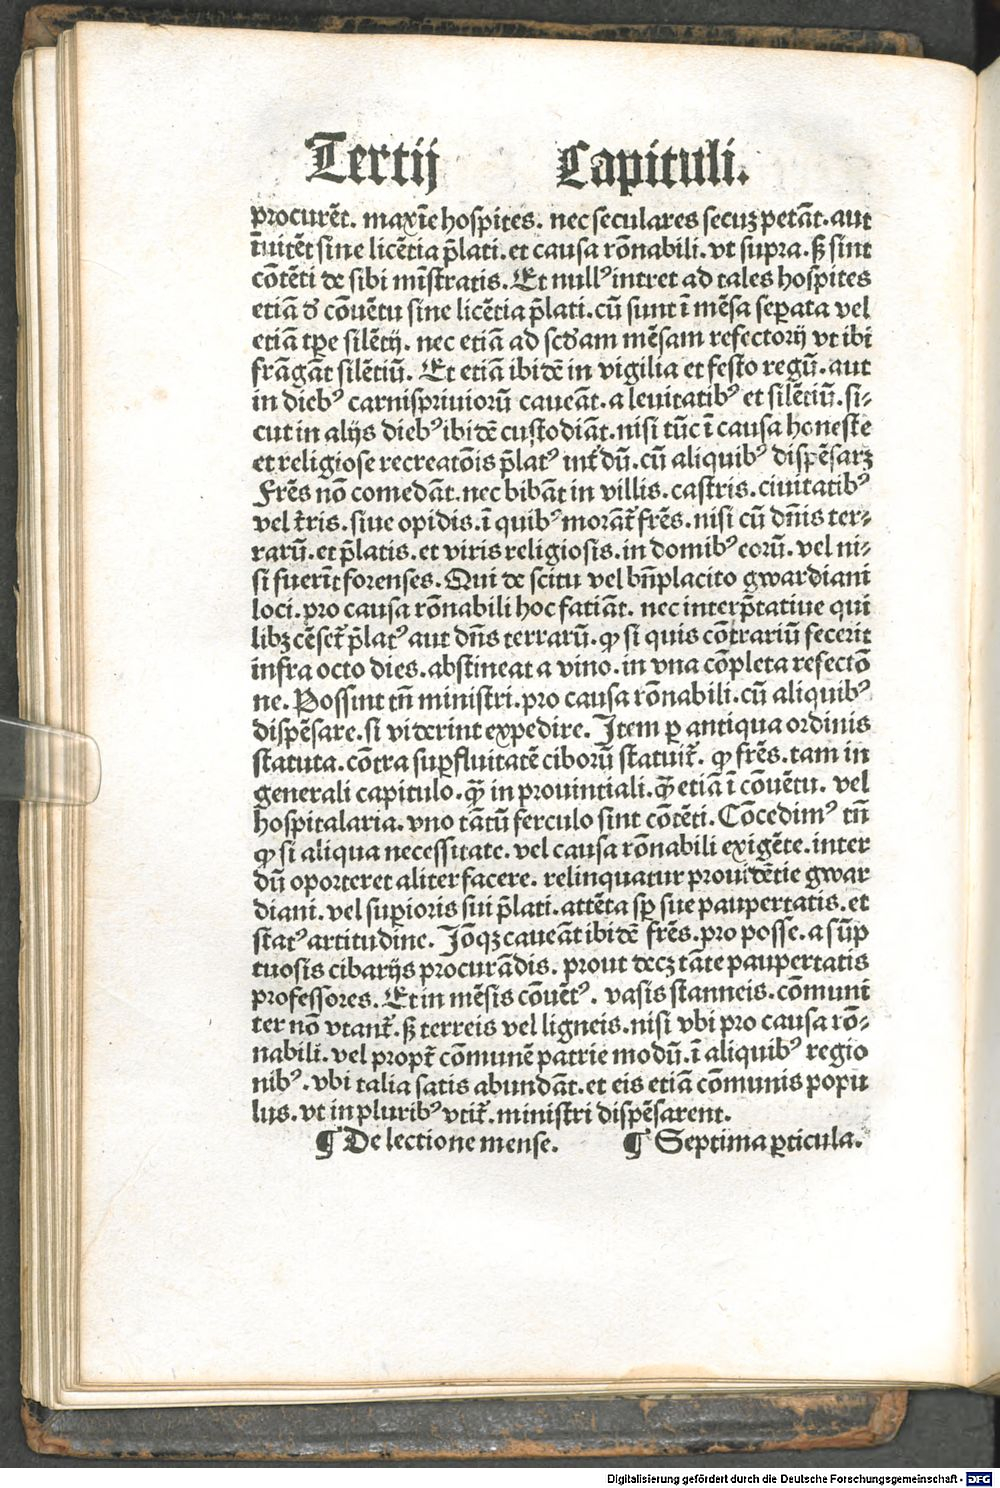 Tertij Capituli.
procurēt. maxīe hospites. nec seculares secuꝫ petāt. aut
īuitēt sine licētia p̄lati. et causa rōnabili. vt supra. sꝫ sint
cōtēti de sibi mīstratis. Et nullꝰ intret ad tales hospites
etiā d' cōuētu sine licētia p̄lati. cū sunt ī mēsa seꝑata vel
etiā tꝑe silētij. nec etiā ad scd'am mēsam refectorij vt ibi
frāgāt silētiū. Et etiā ibidē in vigilia et festo regū. aut
in diebꝰ carnispriuiorū caueāt. a leuitatibꝰ et silētiū. si⸗
cut in alijs diebꝰ ibidē custodiāt. nisi tūc ī causa honeste
et religiose recreatōis p̄latꝰ int̄dū. cū aliquibꝰ dispēsarꝫ
Frēs nō comedāt. nec bibāt in villis. castris. ciuitatibꝰ
vel t̄ris. siue opidis. ī quibꝰ morāt̄ frēs. nisi cū dn̄is ter⸗
rarū. et p̄latis. et viris religiosis. in domibꝰ eorū. vel ni⸗
si fuerīt forenses. Qui de scitu vel bn̄placito gwardiani
loci. pro causa rōnabili hoc fatiāt. nec interp̄tatiue qui
libꝫ cēset̄ p̄latꝰ aut dn̄s terrarū. ꝙ si quis cōtrariū fecerit
infra octo dies. abstineat a vino. in vna cōpleta refectō
ne. Possint tn̄ ministri. pro causa rōnabili. cū aliquibꝰ
dispēsare. si viderint expedire. Item ꝑ antiqua ordinis
statuta. cōtra suꝑfluitatē ciborū statuit̄. ꝙ frēs. tam in
generali capitulo. ꝙ̄ in prouintiali. ꝙ̄ etiā ī cōuētu. vel
hospitalaria. vno tātū ferculo sint cōtēti. Cōcedimꝰ tn̄
ꝙ si aliqua necessitate. vel causa rōnabili exigēte. inter
dū oporteret aliter facere. relinquatur prouidētie gwar
diani. vel suꝑioris sui p̄lati. attēta sꝑ sue paupertatis. et
statꝰ artitudine. Iōqꝫ caueāt ibidē frēs. pro posse. a sūp
tuosis cibarijs procurādis. prout decꝫ tāte paupertatis
professores. Et in mēsis cōuētꝰ. vasis stanneis. cōmuni
ter nō vtant̄. sꝫ terreis vel ligneis. nisi vbi pro causa rō⸗
nabili. vel propt̄ cōmunē patrie modū. ī aliquibꝰ regio
nibꝰ. vbi talia satis abundāt. et eis etiā cōmunis popu
lus. vt in pluribꝰ vtit̄. ministri dispēsarent.
¶ De lectione mense. ¶ Septima ꝑticula.
Digitalisierung gefördert durch die Deutsche Forschungsgemeinschaft - DFG